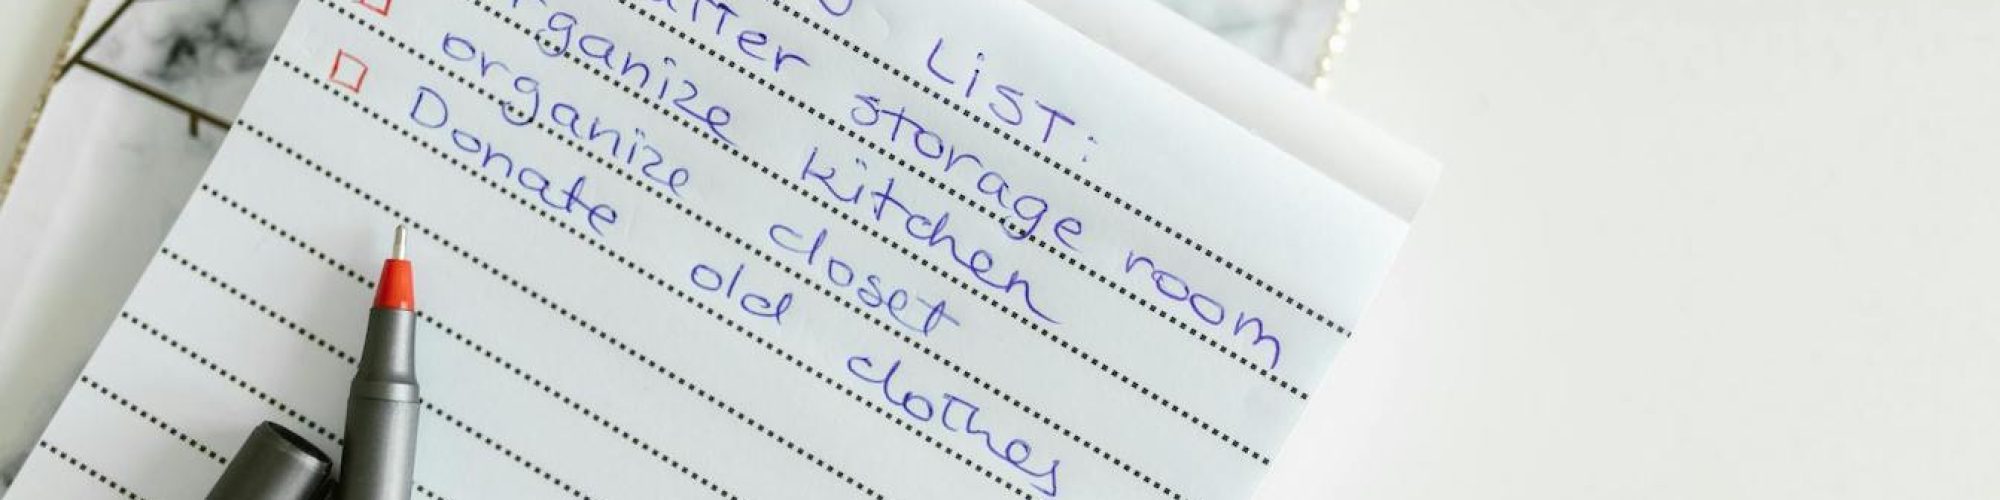 LIST:
storage room
organize kitchen
organize closet
Donate old clothes